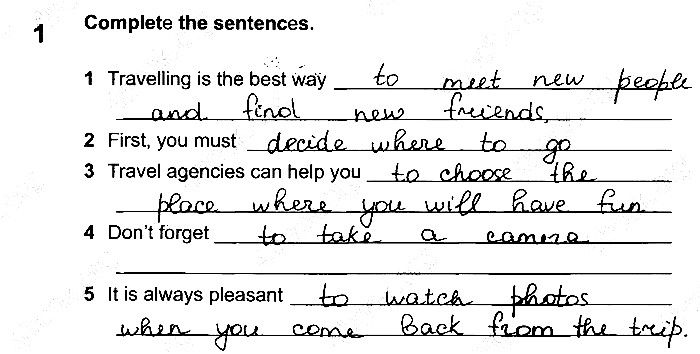 1 Complete the sentences.
1 Travelling is the best way to meet new people
and find new friends.
2 First, you must decide where to go
3 Travel agencies can help you to choose the
place where you will have fun
4 Don't forget to take a camera
5 It is always pleasant to watch photos
when you come back from the trip.